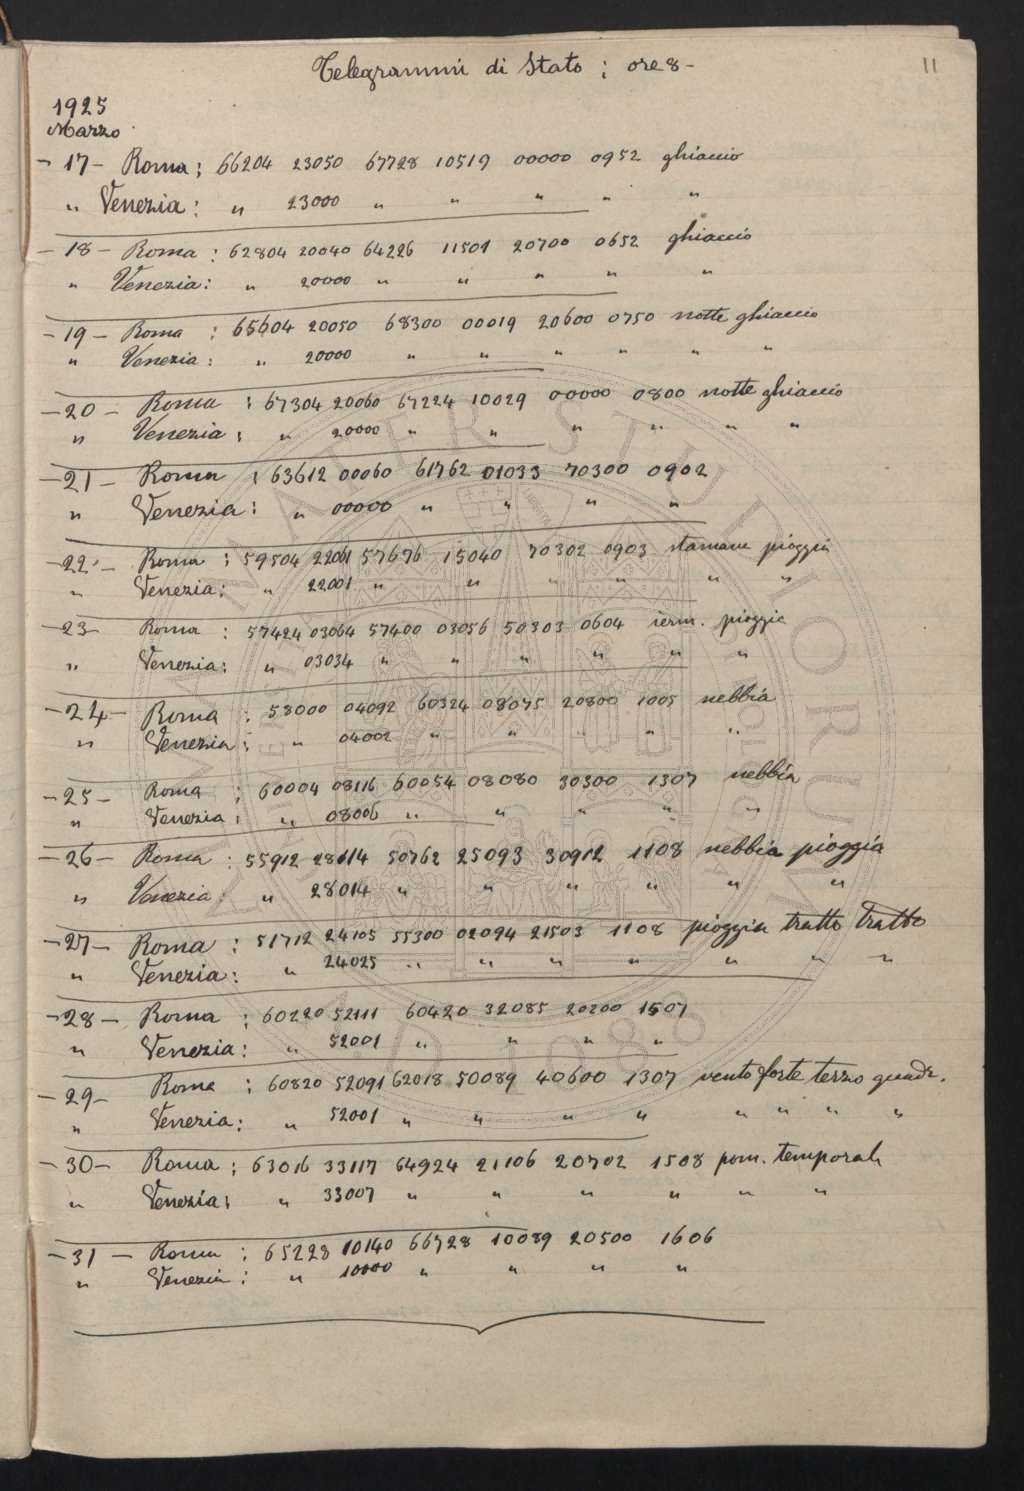 Telegrammi di Stato ; ore 8 -
11
1925
Marzo
- 17 - Roma ; 66204 23050 67728 10519 00000 0952 ghiaccio
" Venezia : " 23000 " " " " "
- 18 - Roma : 62804 20040 64226 11501 20700 0652 ghiaccio
" Venezia : " 20000 " " " " "
- 19 - Roma : 65604 20050 68300 00019 20600 0750 notte ghiaccio
" Venezia : " 20000 " " " " " "
- 20 - Roma : 67304 20060 67224 10029 00000 0800 notte ghiaccio
" Venezia : " 20000 " " " " " "
- 21 - Roma : 63612 00060 61762 01033 70300 0902
" Venezia : " 00000 " " " "
- 22 - Roma ; 59504 22061 57676 15040 70302 0903 stamane pioggia
" Venezia : " 22001 " " " " " "
- 23 - Roma : 57424 03064 57400 03056 50303 0604 pioggia
" Venezia : " 03034 " " " " " "
- 24 - Roma : 58000 04092 60324 08075 20800 1005 nebbia
" Venezia : " 04002 " " " " "
- 25 - Roma ; 60004 08116 60054 08080 30300 1307 nebbia
" Venezia : " 08006 " " " " "
- 26 - Roma : 55912 28114 50762 25093 30912 1108 nebbia pioggia
" Venezia : " 28014 " " " " " "
- 27 - Roma : 51712 24105 55300 02094 21503 1108 pioggia tratto tratto
" Venezia : " 24025 " " " " " " "
- 28 - Roma ; 60220 52111 60420 32085 20200 1507
" Venezia : " 52001 " " " "
- 29 - Roma : 60820 52091 62018 50089 40600 1307 vento forte terzo quadr.
" Venezia : " 52001 " " " " " " " "
- 30 - Roma ; 63016 33117 64924 21106 20702 1508 pom. temporale
" Venezia : " 33007 " " " " " "
- 31 - Roma : 65228 10140 66728 10089 20500 1606
" Venezia : " 10000 " " " "
ALMA MATER STUDIORUM
A.D. 1088